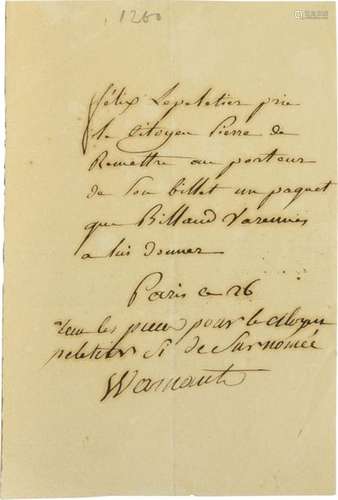 1260
félix Lepeletier prie
le Citoyen Pierre de
Remettre au porteur
de son billet un paquet
que Billaud Varennes
a lui donner
Paris ce 26
les pour le citoyen
peletier St de Surnomée